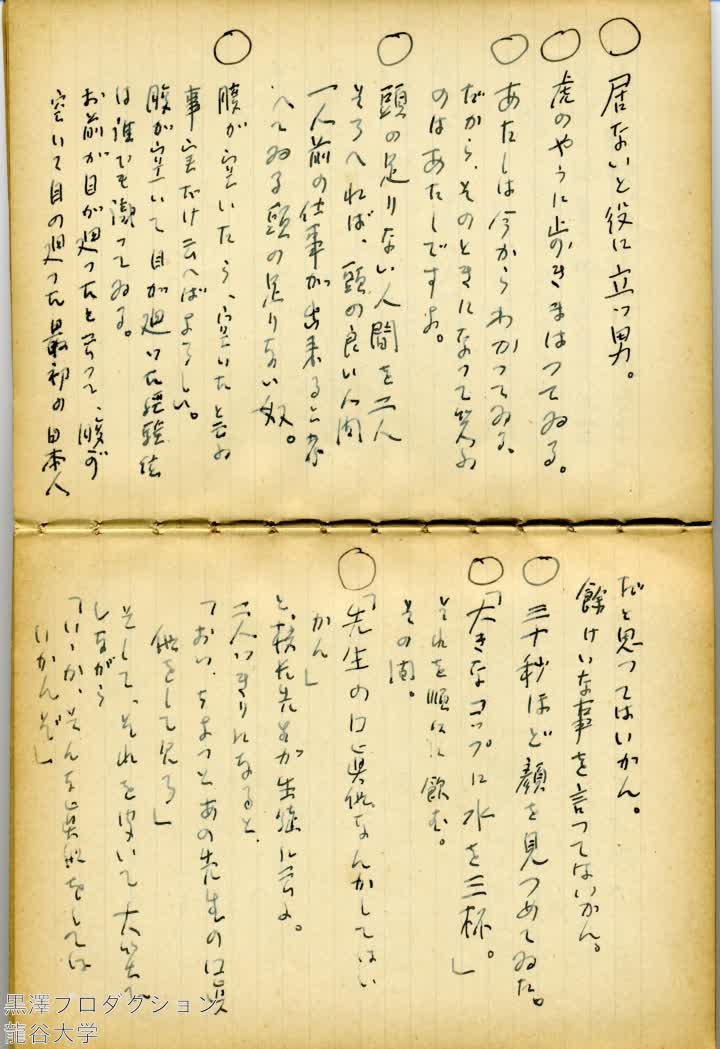 ○ 居ないと役に立つ男。
○ 虎のやうに歩きまはつてゐる。
○ あたしは今からわかつてゐる、
だから、そのときになつて笑ふ
のはあたしですよ。
○ 頭の足りない人間を二人
そろへれば、頭の良い人間
一人前の仕事が出来ると考
へてゐる頭の足りない奴。
○ 腹が空いたら、空いたと云ふ
事実だけ云へばよろしい。
腹が空いて目が廻つた経験
は誰でも潮つてゐる。
お前が目が廻つたと云つて、腹が
空いて目の廻つた最初の日本人
だと思つてはいかん。
餘けいな事を言つてはいかん。
○ 三十秒ほど顔を見つめてゐた。
○「大きなコップに水を三杯。」
それを順々に飲む。
その間。
○「先生の口真似なんかしてはい
かん」
と、先生が生徒に云ふ。
二人つきりになると、
「おい、ちよつとあの先生の口真
似をして見ろ」
そして、それを聞いて大笑ひ
しながら
「いゝか、そんな真似をしては
いかんぞ」
黒澤プロダクション
龍谷大学